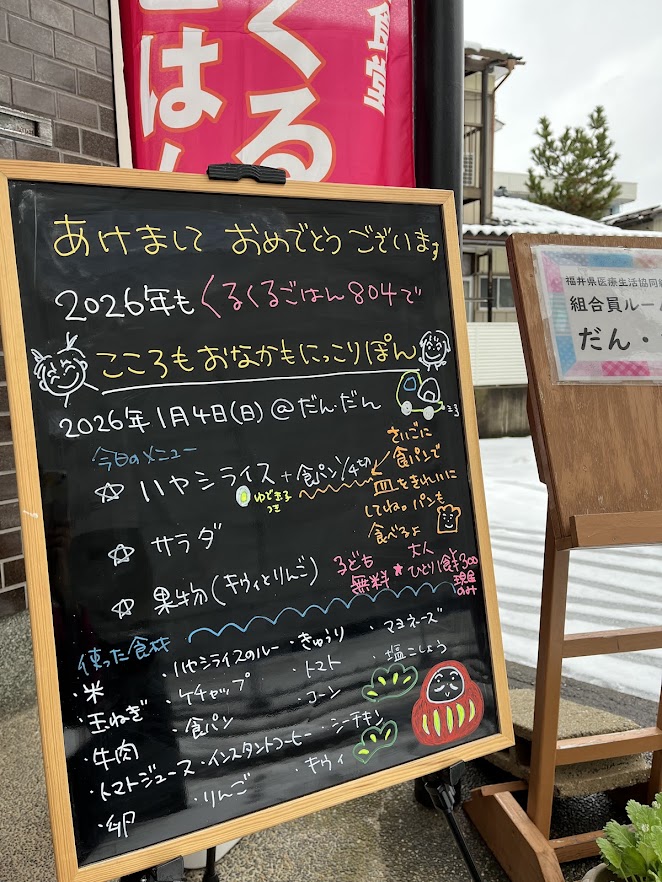 くる
ごはん
あけまして おめでとう ございます
2026年も くるくるごはん804で
こころもおなかもにっこりぽん
2026年1月4日(日)@だん・だん
今日のメニュー
☆ ハヤシライス + 食パン1/4切
ゆでたまご
つき
さいごに
食パンで
皿をきれいに
してね。パンも
食べるよ
☆ サラダ
☆ 果物(キウイとりんご)
子ども
無料
★
大人
ひとり1食¥300
現金
のみ
使った食材
・米
・玉ねぎ
・牛肉
・トマトジュース
・卵
・ハヤシライスのルー
・ケチャップ
・食パン
・インスタントコーヒー
・りんご
・きゅうり
・トマト
・コーン
・シーチキン
・キウィ
・マヨネーズ
・塩こしょう
福井県医療生活協同組
組合員ルー
だん・